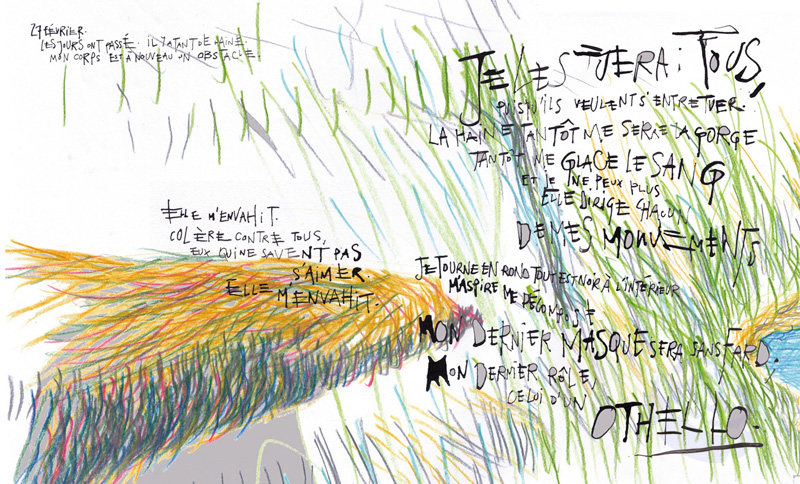 27 FÉVRIER.
LES JOURS ONT PASSÉ. IL Y A TANT DE HAINE.
MON CORPS EST À NOUVEAU UN OBSTACLE.
ELLE M'ENVAHIT.
COLÈRE CONTRE TOUS,
EUX QUI NE SAVENT PAS
S'AIMER.
ELLE M'ENVAHIT.
JE LES TUERAI TOUS,
PUISQU'ILS VEULENT S'ENTRETUER.
LA HAINE TANTÔT ME SERRE LA GORGE
TANTÔT ME GLACE LE SANG
ET JE NE PEUX PLUS
ELLE DIRIGE CHACUN
DE MES MOUVEMENTS
JE TOURNE EN ROND TOUT EST NOIR À L'INTÉRIEUR
M'ASPIRE ME DÉCOMPOSE
MON DERNIER MASQUE SERA SANS FARD.
MON DERNIER RÔLE,
CELUI D'UN
OTHELLO.